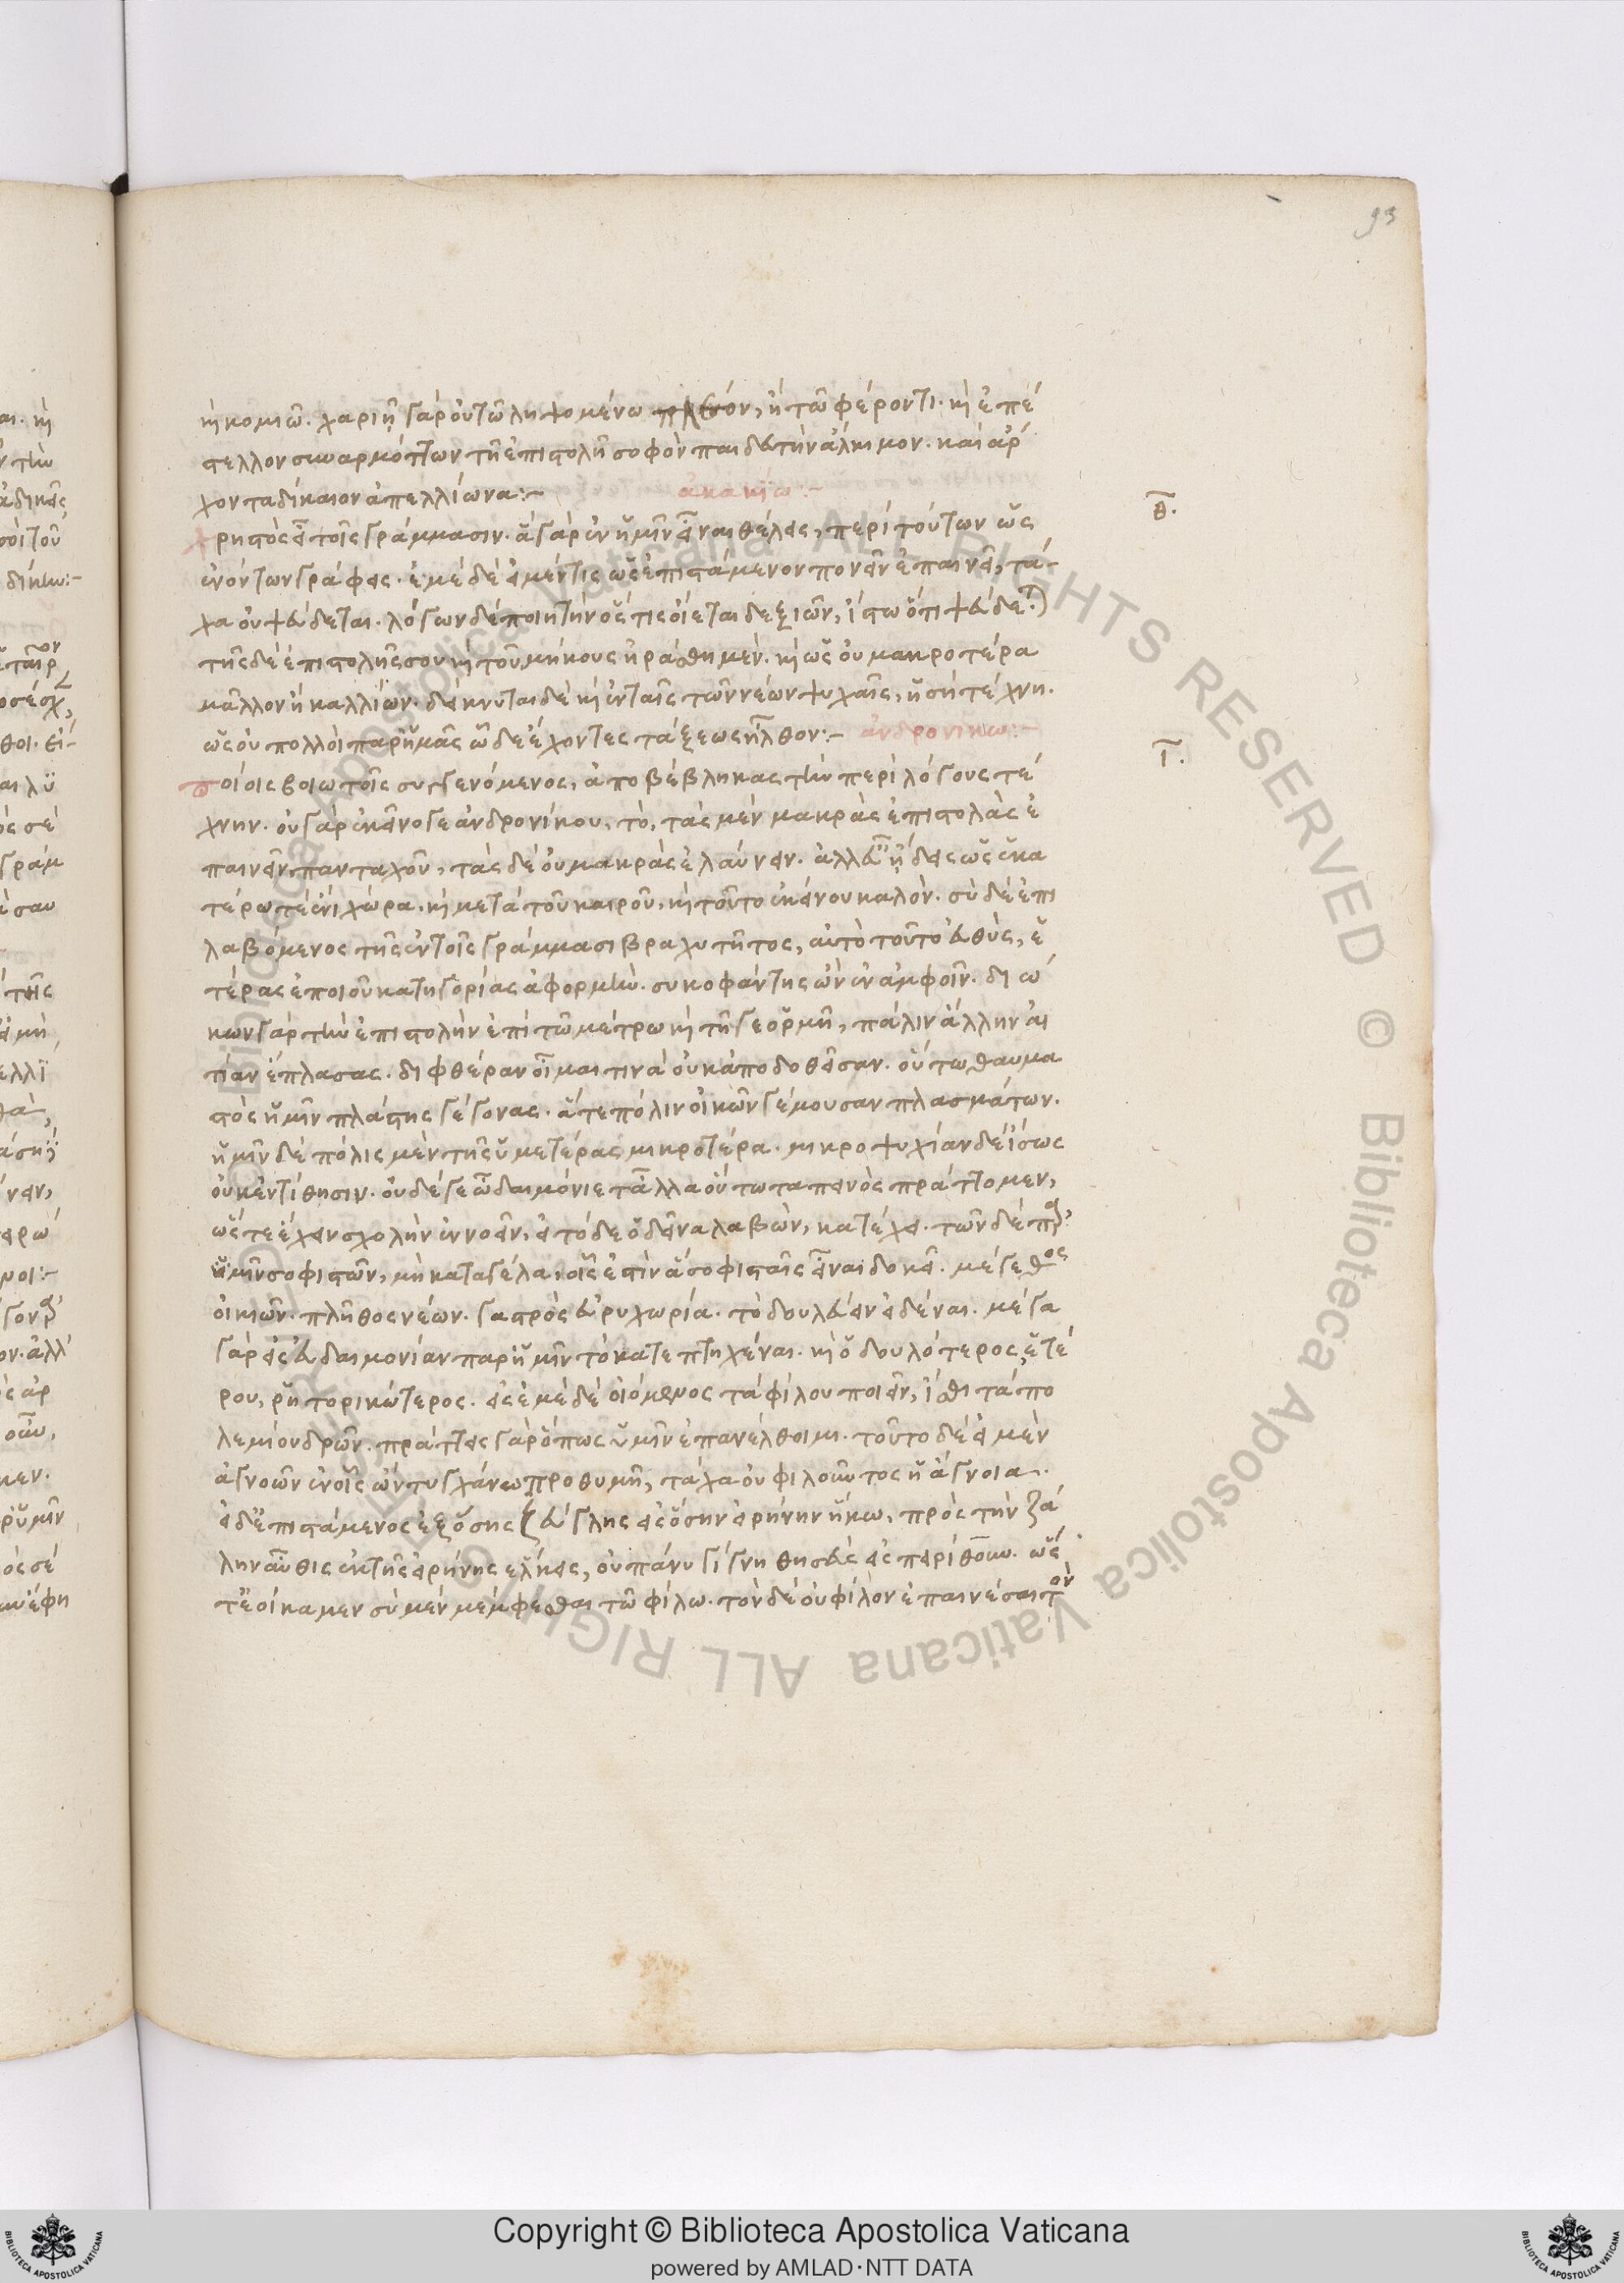 93
καὶ κομιῶ. χαριῇ γὰρ οὐ τῷ ληψομένῳ πλέον, ἢ τῷ φέροντι. καὶ ἐπέ
στελλον συναρμόττων τῇ ἐπιστολῇ σοφὸν παιδευτὴν ἄλκιμον. καὶ ἄρ
χοντα δίκαιον ἀπελλίωνα:-
ἀκακίω:-
θ.
χρηστὸς εἶ τοῖς γράμμασιν. ἃ γὰρ ἐν ἡμῖν εἶναι θέλεις, περὶ τούτων ὡς
ἐνόντων γράφεις. ἐμὲ δὲ εἰ μέν τις ὡς ἐπιστάμενον πονεῖν ἐπαινεῖ, τά-
χα οὐ ψεύδεται. λόγων δὲ ποιητὴν ὅστις οἴεται δεξιῶν, ἴστω ὅτι ψεύδεται
τῆς δὲ ἐπιστολῆς σου καὶ τοῦ μήκους ἠράσθημεν. καὶ ὡς οὐ μακροτέρα
μᾶλλον ἢ καλλίων. δείκνυται δὲ καὶ ἐν ταῖς τῶν νέων ψυχαῖς, ἡ σὴ τέχνη.
ὡς οὐ πολλοὶ παρ' ἡμᾶς ὧδε ἔχοντες τάξεως ἦλθον:- ἀνδρονίκω:-
ι.
ποίοις βοιωτοῖς συγγενόμενος, ἀποβέβληκας τὴν περὶ λόγους τέ
χνην. οὐ γὰρ ἐκεῖνό γε ἀνδρονίκου, τὸ, τὰς μὲν μακρὰς ἐπιστολὰς ἐ
παινεῖν πανταχοῦ, τὰς δὲ οὐ μακρὰς ἐλαύνειν. ἀλλ' εὖ ᾔδεις ὡς ἑκα
τέρω τέ ἐνι χώρα. καὶ μετὰ τοῦ καιροῦ, καὶ τοῦτο κἀκείνου καλόν. σὺ δὲ ἐπι
λαβόμενος τῆς ἐν τοῖς γράμμασι βραχυτῆτος, αὐτὸ τοῦτο εὐθὺς, ἑ
τέρας ἐποιοῦ κατηγορίας ἀφορμήν. συκοφάντης ὢν ἐν ἀμφοῖν. διώ
κων γὰρ τὴν ἐπιστολὴν ἐπὶ τῷ μέτρω καὶ τῇ γε ὁρμῇ, πάλιν ἄλλην αἰ
τίαν ἔπλασας. διφθέραν οἶμαί τινα οὐκ ἀποδοθεῖσαν. οὕτω θαυμα
στὸς ἡμῖν πλάστης γέγονας. ἅτε πόλιν οἰκῶν γέμουσαν πλασμάτων.
ἡμῖν δὲ πόλις μὲν τῆς ὑμετέρας μικροτέρα. μικροψυχίαν δὲ ἴσως
οὐκ ἐντίθησιν. οὐδέ γε ὦ δαιμόνιε τἆλλα οὕτω ταπεινὸς πράττομεν,
ὥς τε ἔχειν σχολὴν ἐννοεῖν, εἰ τόδε ὁ δεῖνα λαβὼν, κατέχει. τῶν δὲ παρ'
ἡμῖν σοφιστῶν, μὴ καταγέλα, οἷς ἐστὶν ἃ σοφισταῖς εἶναι δοκεῖ. μέγεθος
οἰκιῶν. πλῆθος νέων. γαστρὸς εὐρυχωρία. τὸ δουλεύειν εἰδέναι. μέγα
γὰρ εἰς εὐδαιμονίαν παρ' ἡμῖν τὸ κατεπτηχέναι. καὶ ὁ δουλότερος, ἑτέ
ρου, ῥητορικώτερος. εἰς ἐμὲ δὲ οἰόμενος τὰ φίλου ποιεῖν, ἴσθι τὰ πο
λεμίου δρῶν. πράττεις γὰρ ὅπως ὑμῖν ἐπανέλθοιμι. τοῦτο δὲ εἰ μὲν
ἀγνοῶν ἐν οἷς ὢν τυγχάνω προθυμῇ, τάχα οὐ φιλοῦντος ἡ ἄγνοια.
εἰ δ' ἐπιστάμενος ἐξ ὅσης ζεύγλης εἰς ὅσην εἰρήνην ἥκω, πρὸς τὴν ζά
λην αὖθις ἐκ τῆς εἰρήνης ἕλκεις, οὐ πάνυ γιγνη θησεὺς εἰς πειρίθουν. ὥς
τ' ἐοίκαμεν σὺ μὲν μέμφεσθαι τῷ φίλω. τὸν δὲ οὐ φίλον ἐπαινέσαι τὸν
Copyright © Biblioteca Apostolica Vaticana
powered by AMLAD·NTT DATA